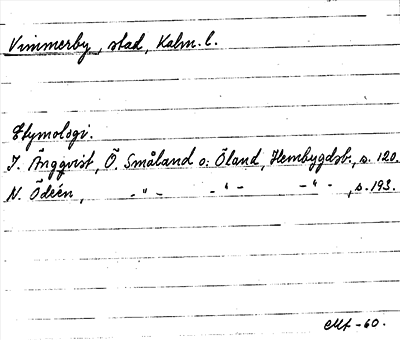 Vimmerby, stad, Kalm. l.
Etymologi.
J. Ängqvist, Ö. Småland o. Öland, Hembygdsb., s. 120.
N. Ödeén, -"- -"- -"-, s. 193.
-60.